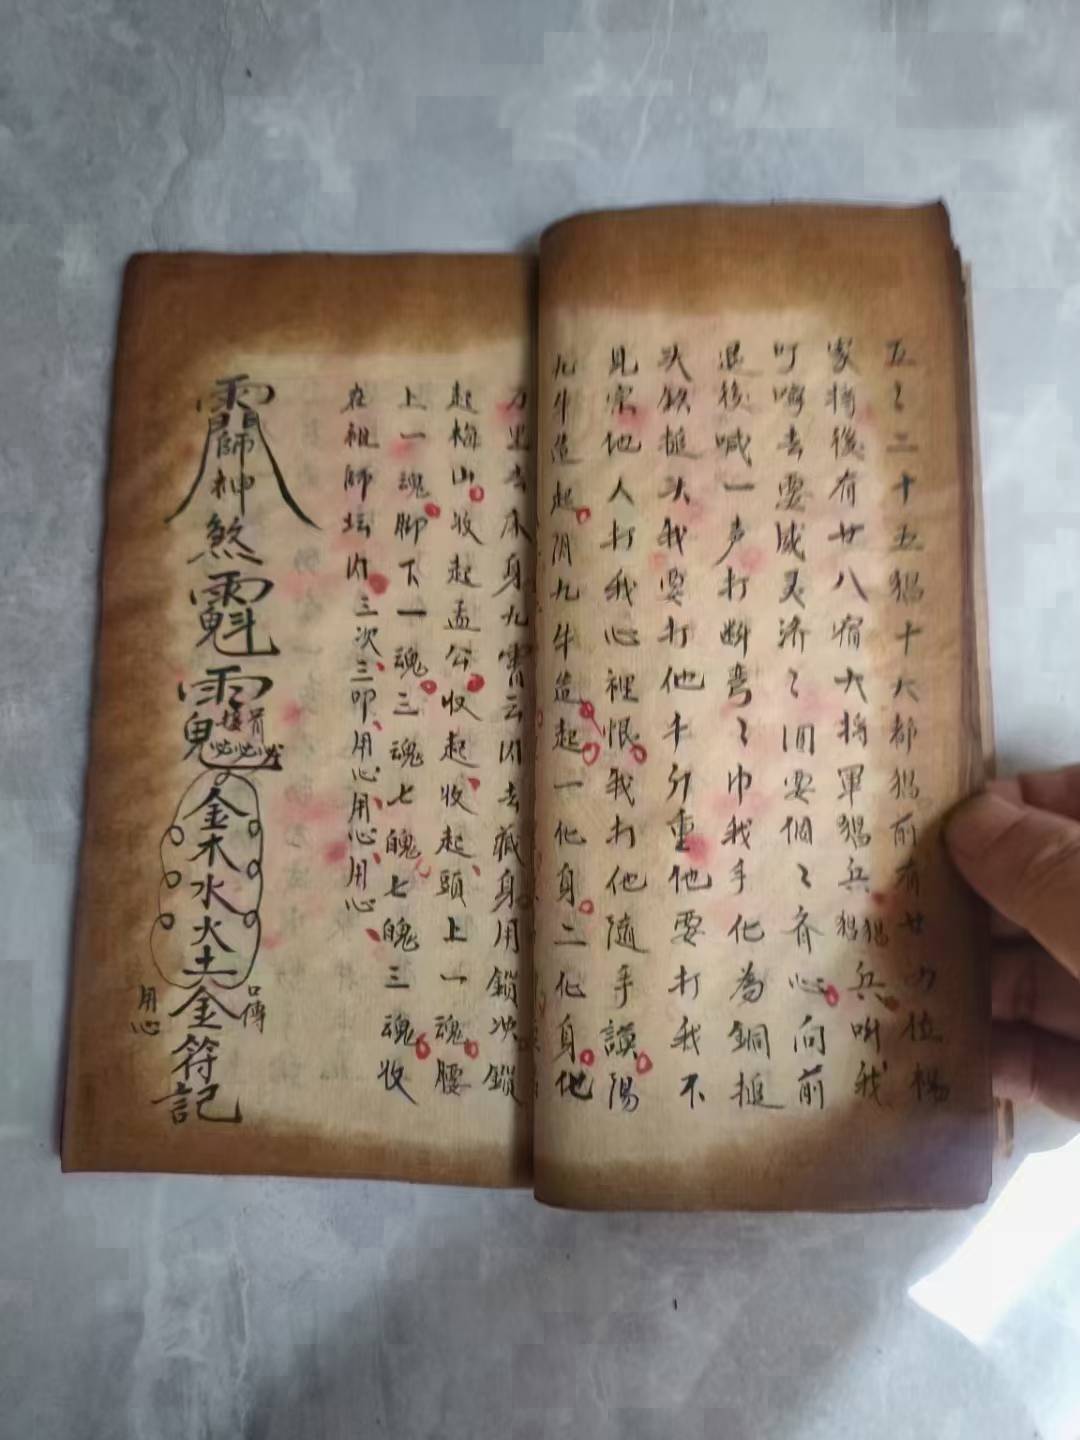 五〻二十五猖十六都猖前有廿四位楊
家将後有廿八宿大将軍猖兵猖猖兵叫我
叮嚀去要威灵济〻囬要個〻齐心向前
退後喊一声打断弯〻巾我手化為銅搥
头铁搥头我要打他千斤重他要打我不
見宗他人打我心裡恨我打他隨手謨陽
九牛造起阴九牛造起一化身二化身他
刀里去床身九霄云内去藏身用鎖次鎖
起梅山收起孟公收起收起頭上一魂腰
上一魂脚下一魂三魂七魄七魄三魂收
在祖師坛内三次三叩用心用心用心
師神
煞
金木水火土金符記
口傳
用心